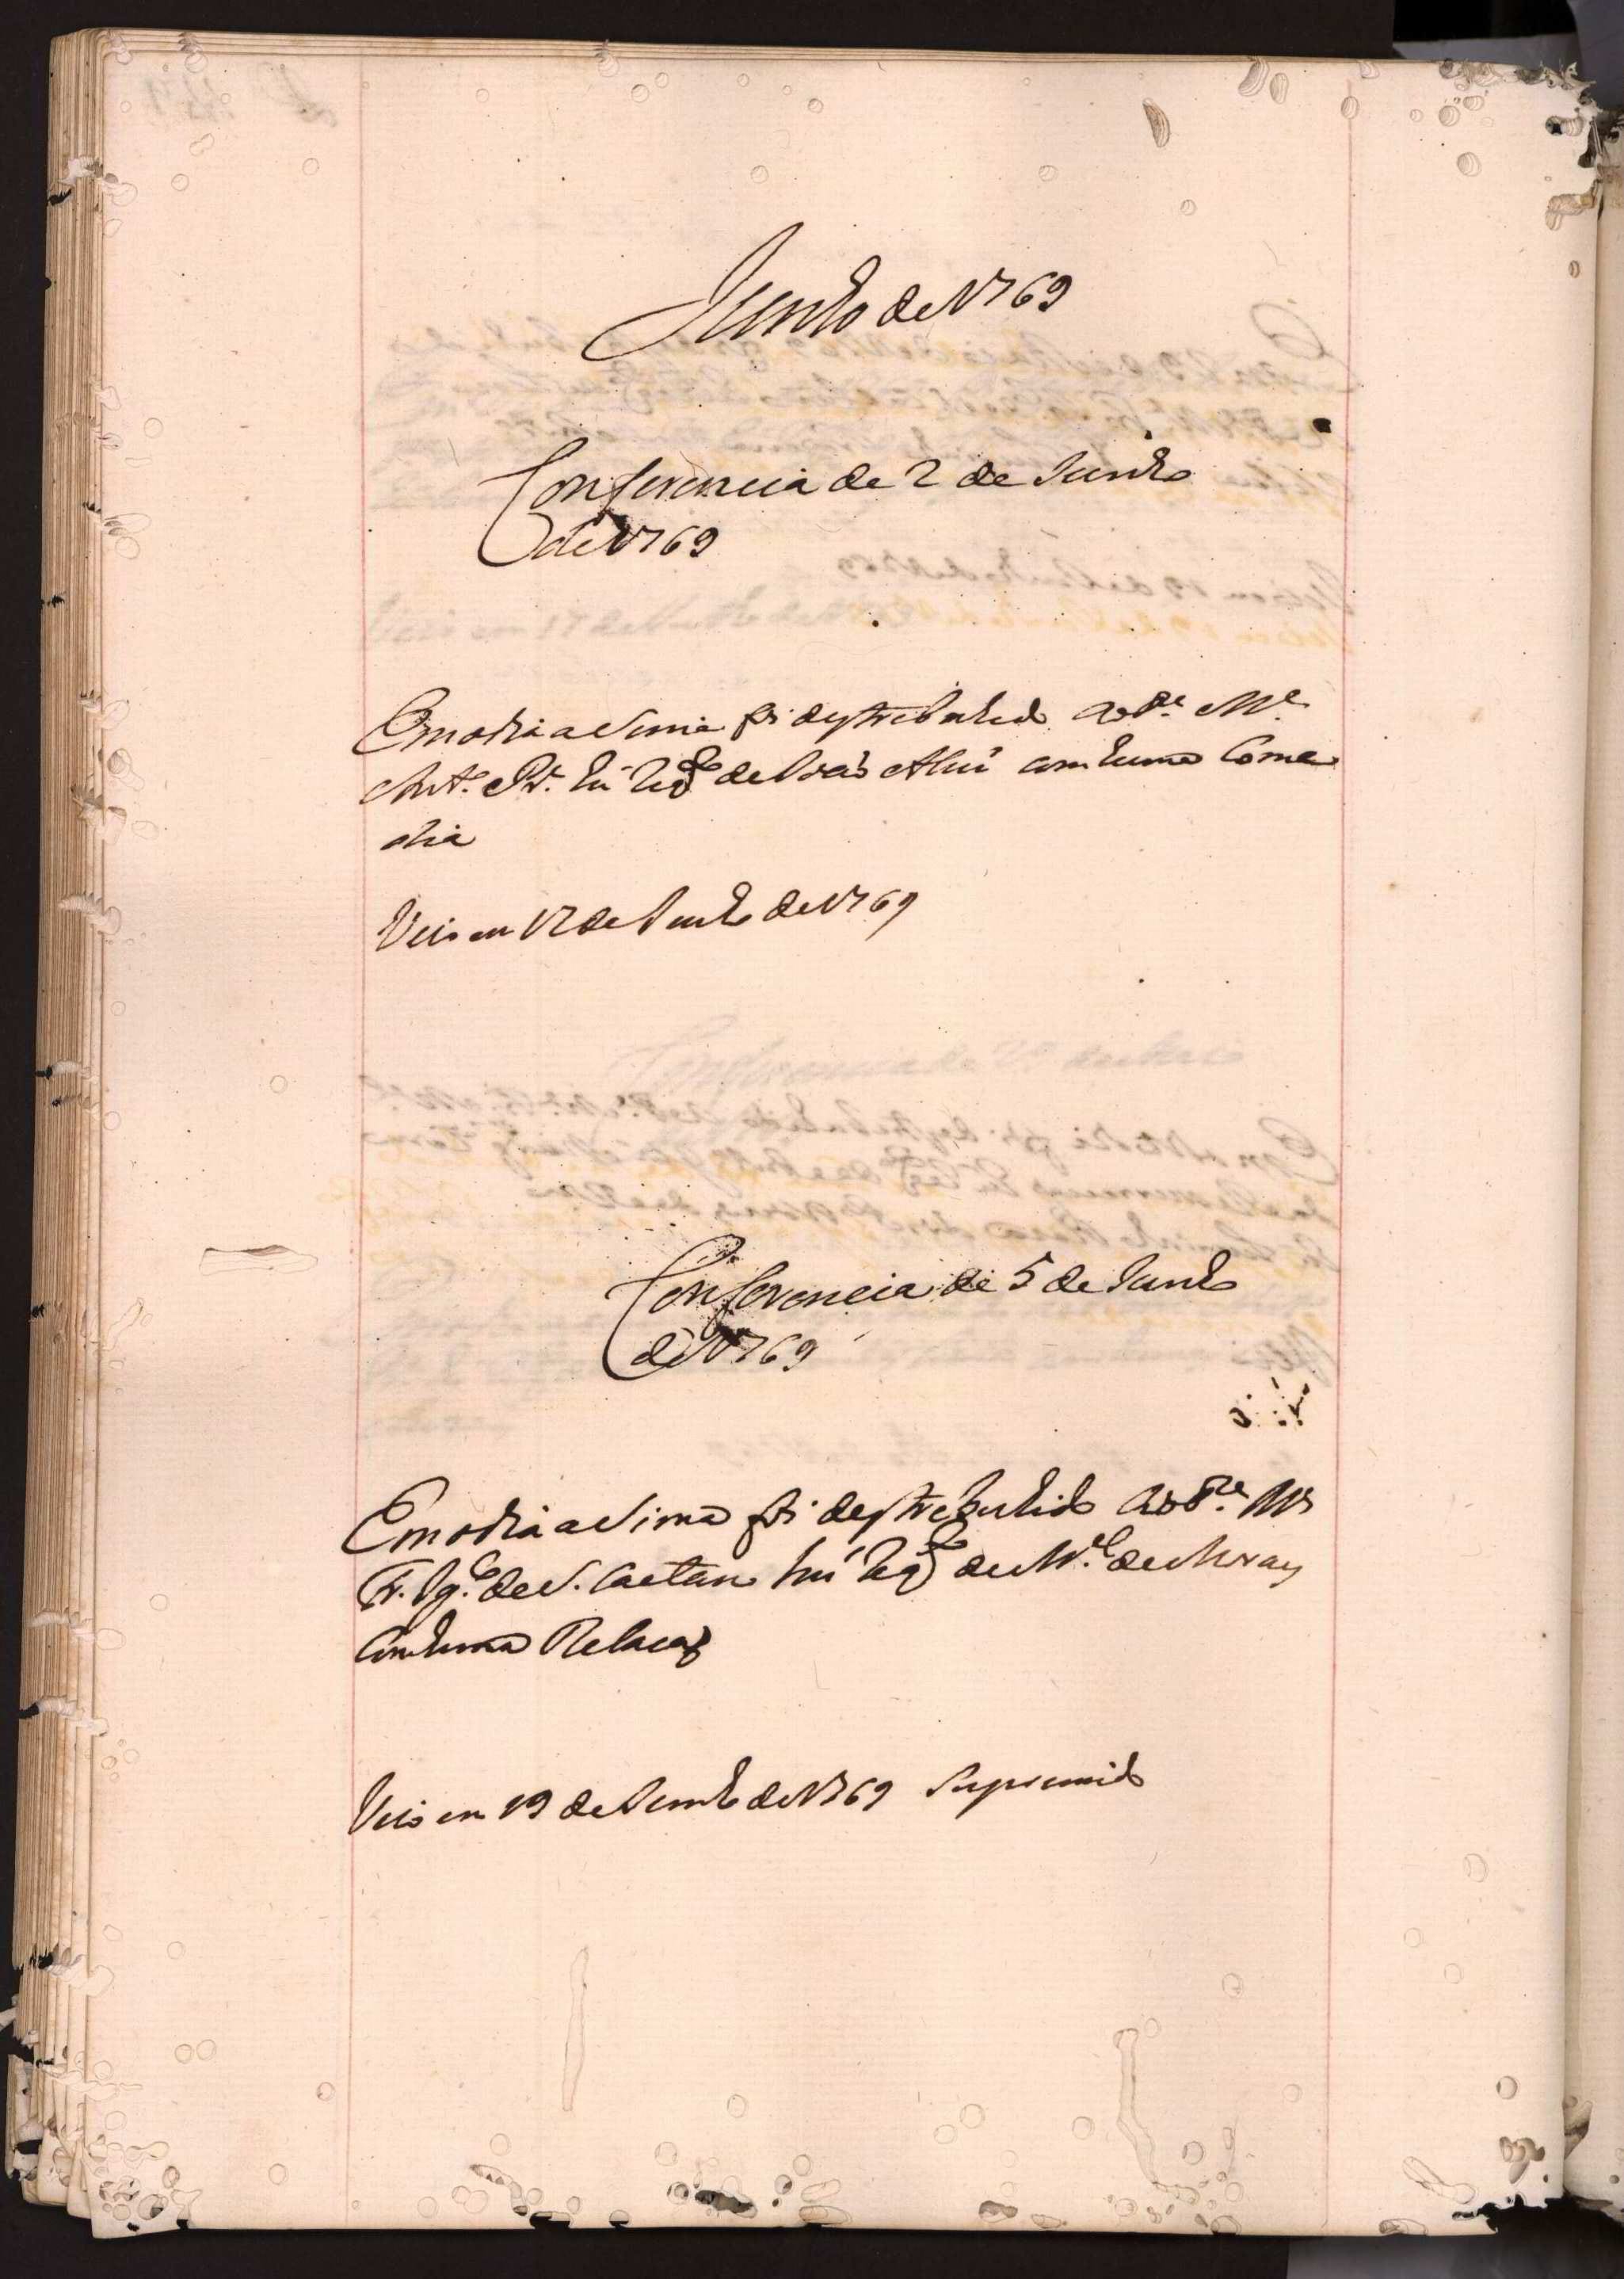 Junho de 1769
Conferencia de 2 de Junho
de 1769
Em o dia asima foi destrebuhido ao Pe. Me.
Ant.º Pr.ª hũ Reqto de Bras com huma Come
dia
Veio em 12 de Junho de 1769
Conferencia de 5 de Junho
de 1769
Em o dia asima foi destrebuhido ao Pe. Me
Fr. Ig.co de S. Caetano hũ Reqto de M.el de
com huma Relacaõ
Veio em 19 de Junho de 1769 Supremido